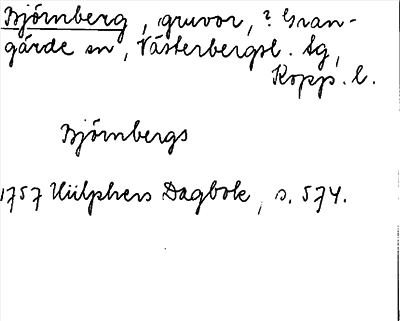 Björnberg, gruvor, ? Gran-
gärde sn, Västerbergsl. tg,
Kopp. l.
Björnbergs
1757 Hülphers Dagbok, s. 574.